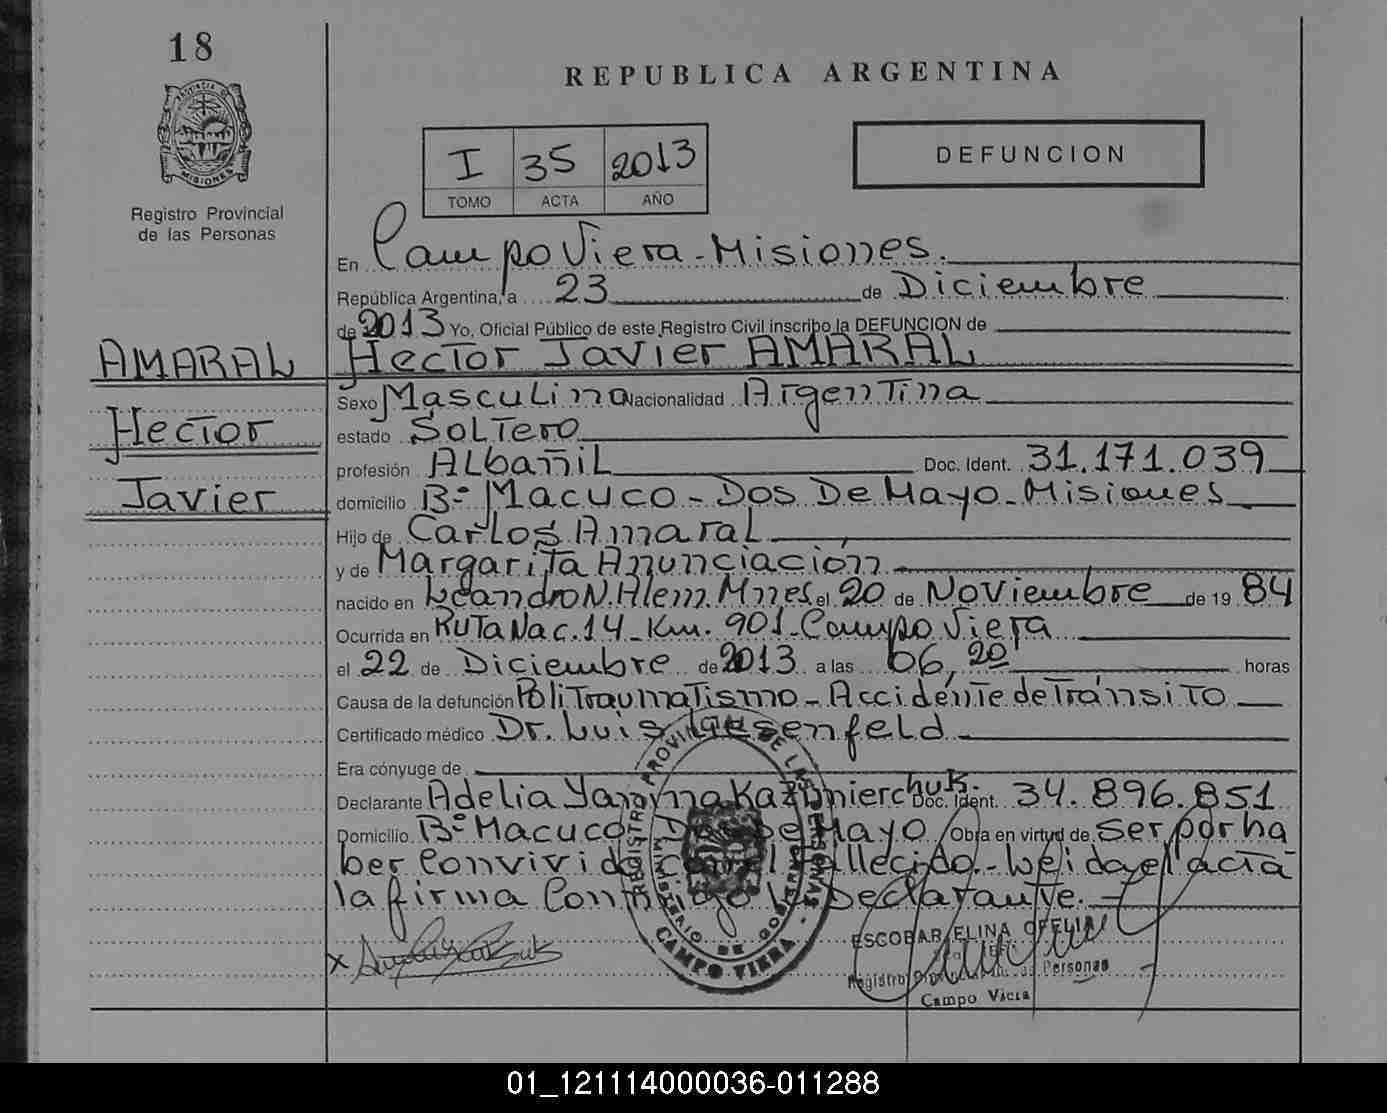 18
REPUBLICA ARGENTINA
PROVINCIA DE
MISIONES
Registro Provincial
de las Personas
I 35 2013
TOMO ACTA AÑO
DEFUNCION
En Campo Viera - Misiones.
República Argentina, a 23 de Diciembre
de 2013 Yo, Oficial Público de este Registro Civil inscribo la DEFUNCION de
AMARAL
Hector
Javier
Hector Javier AMARAL
Sexo Masculino Nacionalidad Argentina
estado Soltero
profesión Albañil Doc. Ident. 31.171.039
domicilio Bº Macuco - Dos De Mayo - Misiones
Hijo de Carlos Amaral
y de Margarita Anunciación
nacido en Leandro N. Alem. Mnes el 20 de Noviembre de 19 84
Ocurrida en Ruta Nac. 14 - Km. 901 - Campo Viera
el 22 de Diciembre de 2013 a las 06,20 horas
Causa de la defunción Politraumatismo - Accidente de Tránsito
Certificado médico Dr. Luis
Era cónyuge de
Declarante Adelia Yanina Kazimierchuk. Doc. Ident. 34.896.851
Domicilio Bº Macuco Dos De Mayo Obra en virtud de ser por ha
ber convivido con el fallecido. - Leida el acta
la firma conmigo la Declarante. -
REGISTRO PROVINCIAL DE LAS PERSONAS
MINISTERIO DE GOBIERNO
CAMPO VIERA
x
ESCOBAR ELINA OFELIA
Registro Provincial de las Personas
Campo Viera
01_121114000036-011288